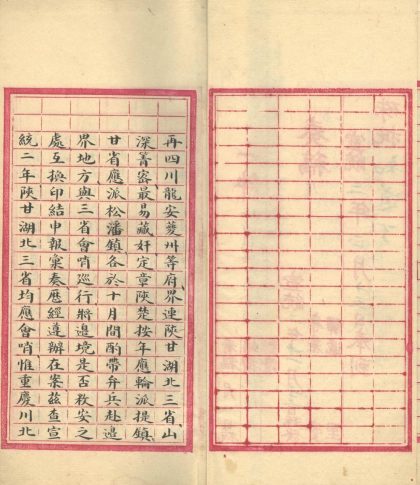 再四川龍安夔州等府界連陝甘湖北三省山
深菁密最易藏奸定章陝楚按年應輪派提鎮
甘省應派松潘鎮各於十月間酌帶弁兵赴邊
界地方與三省會哨巡行將邊境是否敉安之
處互換印結申報彙奏歷經遵辦在案茲查宣
統二年陝甘湖北三省均應會哨惟重慶川北